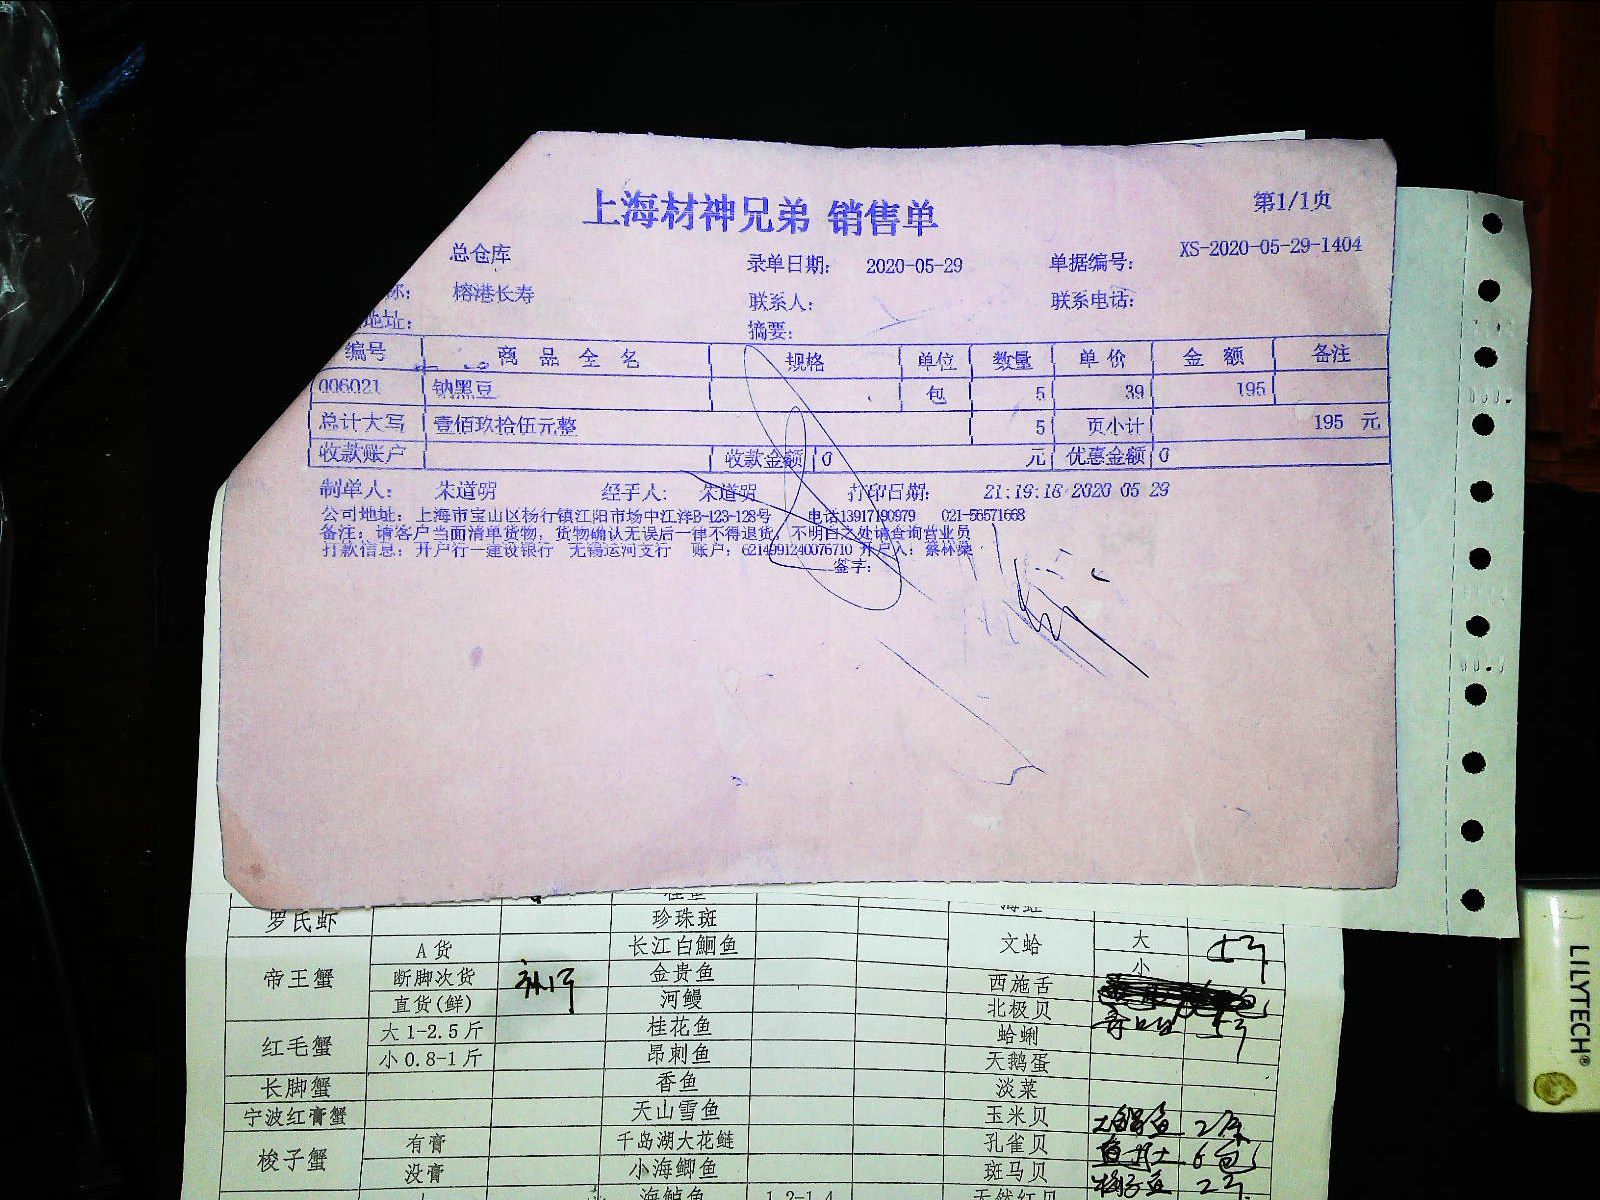 上海材神兄弟 销售单
第1/1页
总仓库 录单日期: 2020-05-29 单据编号: XS-2020-05-29-1404
称: 榕港长寿 联系人: 联系电话:
地址: 摘要:
编号 商品全名 规格 单位 数量 单价 金额 备注
006021 钠黑豆 包 5 39 195
总计大写 壹佰玖拾伍元整 5 页小计 195 元
收款账户 收款金额 0 元 优惠金额 0
制单人: 朱道明 经手人: 朱道明 打印日期: 21:19:18 2020 05 29
公司地址: 上海市宝山区杨行镇江阳市场中江洋B-123-128号 电话13917190979 021-56571668
备注: 请客户当面清单货物, 货物确认无误后一律不得退货, 不明白之处请查询营业员
打款信息: 开户行一建设银行 无锡运河支行 账户: 6214991240076710 开户人: 蔡林荣
签字:
罗氏虾 珍珠斑
帝王蟹 A货 长江白鮰鱼 文蛤 大
断脚次货 金贵鱼 小
直货(鲜) 河鳗 西施舌
红毛蟹 大1-2.5斤 桂花鱼 北极贝
小0.8-1斤 昂刺鱼 蛤蜊
长脚蟹 香鱼 天鹅蛋
宁波红膏蟹 天山雪鱼 淡菜
梭子蟹 有膏 千岛湖大花鲢 玉米贝
没膏 小海鲫鱼 孔雀贝 6包
海鲈鱼 1.2-1.4 斑马贝
天然红贝
LILYTECH®